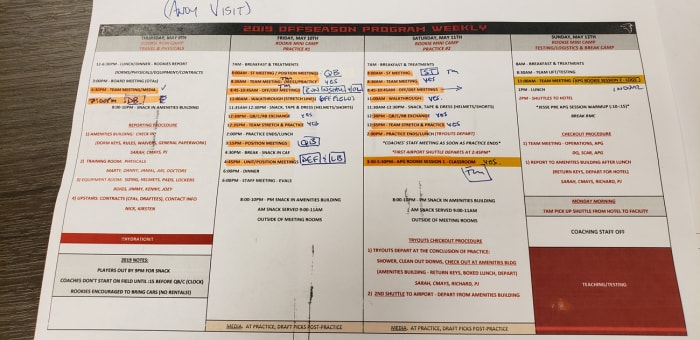 (ANDY VISIT)
2019 OFFSEASON PROGRAM WEEKLY
THURSDAY, MAY 9TH
ROOKIE MINI CAMP
TRAVEL & PHYSICALS
12-4:30PM - LUNCH/DINNER - ROOKIES REPORT
DORMS/PHYSICALS/EQUIPMENT/CONTRACTS
3:00PM - BOARD MEETING (STAI)
4:30PM - TEAM MEETING/MEDIA
7:00PM DB
8:00-10PM - SNACK IN AMENITIES BUILDING
REPORTING PROCEDURE
1) AMENITIES BUILDING: CHECK IN
(DORM KEYS, RULES, WAIVERS, GENERAL PAPERWORK)
SARAH, CMAYS, PJ
2) TRAINING ROOM: PHYSICALS
MARTY, DANNY, JAMAL, AIR, DOCTORS
3) EQUIPMENT ROOM: SIZING, HELMETS, PADS, LOCKERS
JIMMY, KENNY, JOEY
4) UPSTAIRS: CONTRACTS (CFAs, DRAFTEES), CONTACT INFO
NICK, KIRSTEN
TRYDRATION!!
2019 NOTES:
PLAYERS OUT BY 9PM FOR SNACK
COACHES DON'T START ON FIELD UNTIL :15 BEFORE QB/C (CLOCK)
ROOKIES ENCOURAGED TO BRING CARS (NO RENTALS!)
FRIDAY, MAY 10TH
ROOKIE MINI CAMP
PRACTICE #1
7AM - BREAKFAST & TREATMENTS
8:00AM - ST MEETING / POSITION MEETINGS QB
TM
8:30AM - TEAM MEETING - MEDIA/PRACTICE YES
8:45-10:45AM - OFF/DEF MEETINGS
11:00AM - WALKTHROUGH (STRETCH 10:55) OFF FIELD
11:35AM 12:20PM - SNACK, TAPE & DRESS (HELMETS/SHORTS)
12:20PM - QB/C/RB EXCHANGE YES
12:35PM - TEAM STRETCH & PRACTICE YES
2:00PM - PRACTICE ENDS/LUNCH
3:15PM - POSITION MEETINGS QB
4:30PM - BREAK - SNACK IN CAF
4:45PM - UNIT/POSITION MEETINGS DEF/LB
6:00PM - DINNER
6:00PM - STAFF MEETING - EVALS
8:00-10PM - PM SNACK IN AMENITIES BUILDING
AM SNACK SERVED 9:00-11AM
OUTSIDE OF MEETING ROOMS
MEDIA: AT PRACTICE, DRAFT PICKS POST-PRACTICE
SATURDAY, MAY 11TH
ROOKIE MINI CAMP
PRACTICE #2
7AM - BREAKFAST & TREATMENTS
8:00AM - ST MEETING ST TM
8:30AM - TEAM MEETING YES
8:45-10:45AM - OFF/DEF MEETINGS
11:00AM - WALKTHROUGH YES
11:35AM 12:20PM - SNACK, TAPE & DRESS (HELMETS/SHORTS)
12:20PM - QB/C/RB EXCHANGE YES
12:35PM - TEAM STRETCH & PRACTICE YES
2:00PM - PRACTICE ENDS/LUNCH (TRYOUTS DEPART)
"COACHES' STAFF MEETING AS SOON AS PRACTICE ENDS"
*FIRST AIRPORT SHUTTLE DEPARTS AT 2:45PM*
APQ ROOKIE SESSION 1 - CLASSROOM YES
TM
8:00-10PM - PM SNACK IN AMENITIES BUILDING
AM SNACK SERVED 9:00-11AM
OUTSIDE OF MEETING ROOMS
TRYOUTS CHECKOUT PROCEDURE
1) TRYOUTS DEPART AT THE CONCLUSION OF PRACTICE:
SHOWER, CLEAN OUT DORMS, CHECK OUT AT AMENITIES BLDG
(AMENITIES BUILDING - RETURN KEYS, BOXED LUNCH, DEPART)
SARAH, CMAYS, RICHARD, PJ
2) 2ND SHUTTLE TO AIRPORT - DEPART FROM AMENITIES BUILDING
MEDIA: AT PRACTICE, DRAFT PICKS POST-PRACTICE
SUNDAY, MAY 12TH
ROOKIE MINI CAMP
TESTING/LOGISTICS & BREAK CAMP
8AM - BREAKFAST & TREATMENTS
8:30AM - TEAM LIFT/TESTING
11:00AM - TEAM MEETING
1PM - LUNCH
2PM - SHUTTLES TO HOTEL
BREAK RMC
CHECKOUT PROCEDURE
1) TEAM MEETING - OPERATIONS, APQ
DQ, SCAR, APQ
1) REPORT TO AMENITIES BUILDING AFTER LUNCH
(RETURN KEYS, DEPART FOR HOTEL)
SARAH, CMAYS, RICHARD, PJ
MONDAY MORNING
7AM PICK UP SHUTTLE FROM HOTEL TO FACILITY
COACHING STAFF OFF
TEACHING/TESTING